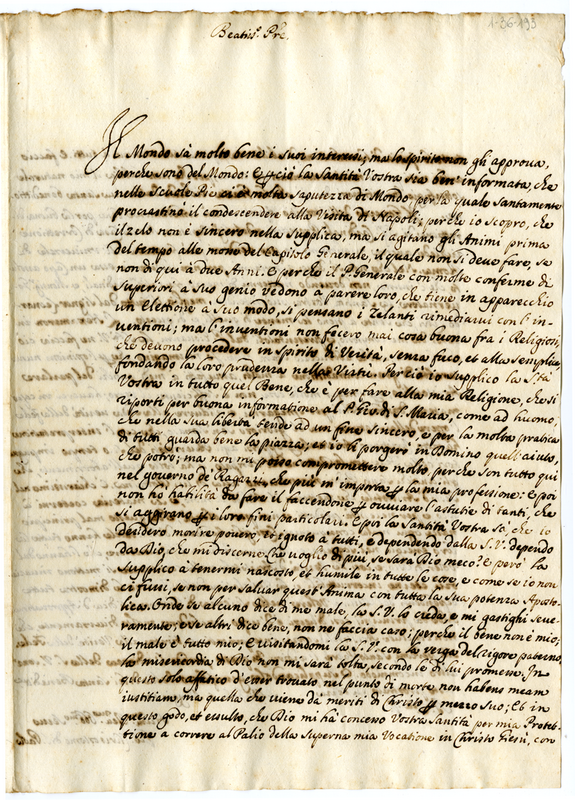 1-36-193
Beatiss.e Pre.
Il Mondo sà molto bene i suoi interessi; ma lo spirito non gli approva,
perche sono del Mondo: E perciò la Santità Vostra sia ben' informata, che
nelle Scuole Pie ci è molta saputezza di Mondo per la quale Santamente
procrastina il condescendere alla Visita di Napoli; perche io scopro, che
il zelo non è sincero nella supplica, ma si agitano gli Animi prima
del tempo alle mone del Capitolo Generale, il quale non si deve fare, se
non di qui à due Anni. E perche il P. Generale con molte conferme di
Superiori à suo genio vedono a parere loro, che tiene in apparecchio
un'Elettione a suo modo, si pensano i Zelanti rimediarvi con l'in-
ventioni; ma l'inventioni non fecero mai cosa buona fra i Religiosi,
che devono procedere in spirito di Verità, senza fuco, et alla semplice,
fondando la loro prudenza nella Virtù. Perciò io supplico la S.tà
Vostra in tutto quel Bene, che è per fare alla mia Religione, che si
riporti per buona informatione al P. Gio: di S. Maria, come ad huomo,
che nella sua libertà tende ad un fine sincero, e per la molta pratica
di tutti guarda bene la piazza; et io li porgerò in Domino quell'aiuto,
che potrò; ma non mi posso compromettere molto, perche son tutto qui
nel governo de' Ragazzi, che più m'importa per la mia professione: E poi
non ho habilità da fare il faccendone per ovviare l'astutie di tanti, che
si aggirano per i loro fini particolari. E poi la Santità Vostra sà, che io
desidero morire povero, et ignoto à tutti, e dependendo dalla S.V. dependo
da Dio, che mi discerne. Che voglio di più, se sarà Dio meco? E però la
supplico à tenermi nascosto, et humile in tutte le cose, e come se io non
ci fussi, se non per salvar quest'Anima con tutta la sua potenza Aposto-
lica. Onde se alcuno dice di me male, la S.V. lo creda, e mi gastighi seve-
ramente; e se altri dice bene, non ne faccia caso; perche il bene non è mio;
il male è tutto mio; E visitandomi la S.V. con la verga del rigore paterno,
la misericordia di Dio non mi sarà tolta, secondo le di lui promesse. In
questo solo affetto d'esser trovato nel punto di morte, non habens meam
iustitiam, ma quella che viene da meriti di Christo per mezzo suo; Et in
questo godo, et essulto, che Dio mi hà concesso Vostra Santità per mia Protet-
tione a correre al Palio della Superna mia Vocatione in Christo Giesù, con